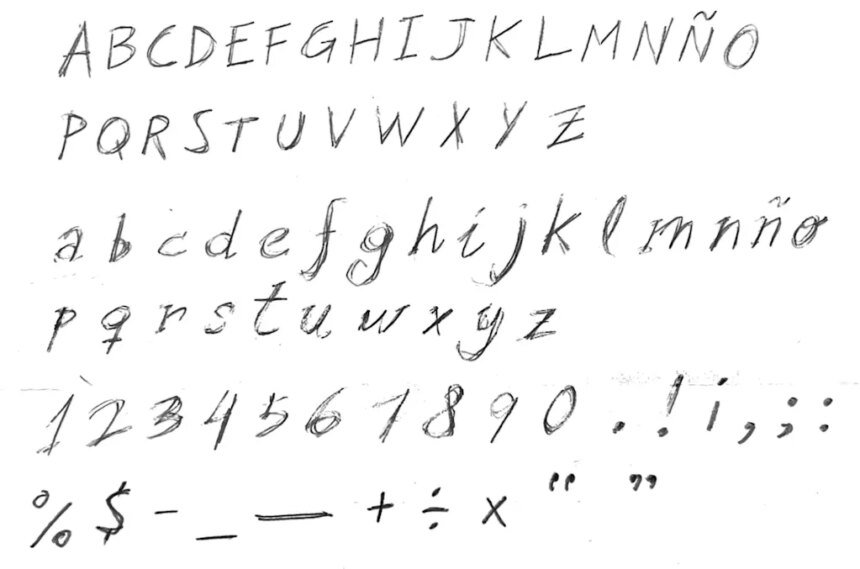 A B C D E F G H I J K L M N Ñ O
P Q R S T U V W X Y Z
a b c d e f g h i j k l m n ñ o
p q r s t u w x y z
1 2 3 4 5 6 7 8 9 0 . ! ¡ , ; :
% $ - _ — + ÷ × “ ”